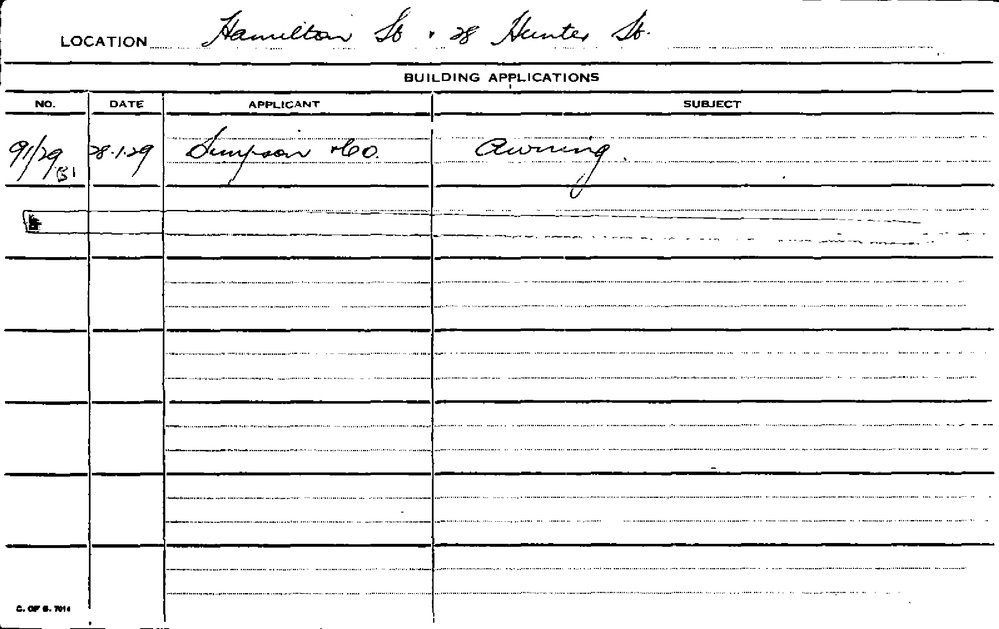 LOCATION Hamilton St & 28 Hunter St.
BUILDING APPLICATIONS
NO. DATE APPLICANT SUBJECT
91/29 B1 28.1.29 Simpson & Co. Awning.
C. OF S. 7014